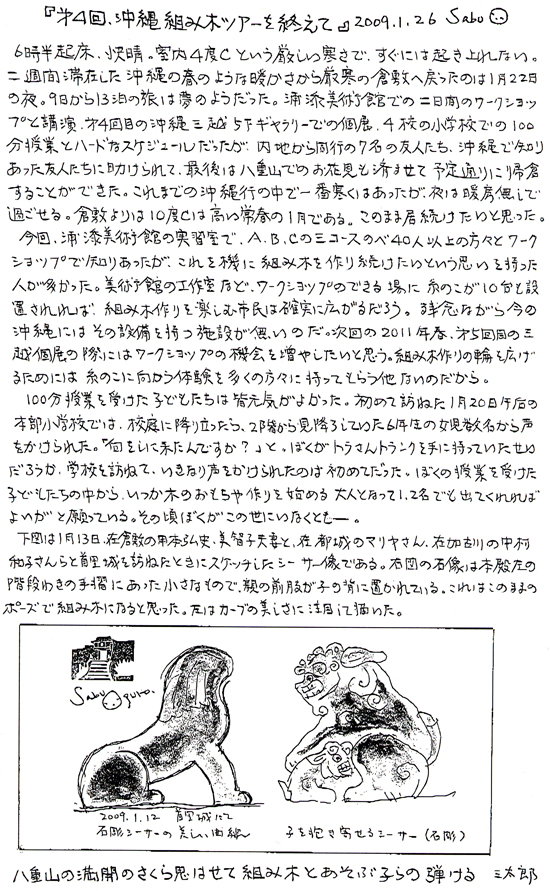 『第4回、沖縄組み木ツアーを終えて』2009.1.26 Sabu
6時半起床、快晴。室内4度Cという厳しい寒さで、すぐには起き上れない。
二週間滞在した沖縄の春のような暖かさから厳寒の倉敷へ戻ったのは1月22日
の夜。9日から13泊の旅は夢のようだった。浦添美術館での二日間のワークショッ
プと講演、第4回目の沖縄三越5Fギャラリーでの個展、4校の小学校での100
分授業とハードなスケジュールだったが、内地から同行の7名の友人たち、沖縄で知り
あった友人たちに助けられて、最後は八重山でのお花見も済ませて予定通りに帰倉
することができた。これまでの沖縄行の中で一番寒くはあったが、夜は暖房無しで
過ごせる。倉敷よりは10度Cは高い常春の1月である。このまま居続けたいと思った。
今回、浦添美術館の実習室で、A、B、Cの三コースのべ40人以上の方々とワーク
ショップで知りあったが、これを機に組み木を作り続けたいという思いを持った
人が多かった。美術館の工作室など、ワークショップのできる場に糸のこが10台も設
置されれば、組み木作りを楽しむ市民は確実に広がるだろう。残念ながら今の
沖縄にはその設備を持つ施設が無いのだ。次回の2011年春、第5回目の三
越個展の際にはワークショップの機会を増やしたいと思う。組み木作りの輪を広げ
るためには糸のこに向かう体験を多くの方々に持ってもらう他ないのだから。
100分授業を受けた子どもたちは皆元気がよかった。初めて訪ねた1月20日午后の
本部小学校では、校庭に降り立ったら、2階から見降ろしていた6年生の女児数名から声
をかけられた。「何をしに来たんですか?」と。ぼくがトラさんトランクを手に持っていたせい
だろうか、学校を訪ねて、いきなり声をかけられたのは初めてだった。ぼくの授業を受けた
子どもたちの中から、いつか木のおもちゃ作りを始める大人となって1、2名でも出てくれれば
よいがと願っている。その頃ぼくがこの世にいなくとも―。
下図は1月13日、在倉敷の甲本弘史・美智子夫妻と、在都城のマリヤさん、在加古川の中村
和子さんらと首里城を訪ねたときにスケッチしたシーサー像である。右図の石像は本殿左の
階段わきの手摺にあった小さなもので、親の前肢が子の背に置かれている。これはこのままの
ポーズで組み木になると思った。左はカーブの美しさに注目して描いた。
Sabu Oguro.
2009.1.12 首里城にて
石彫シーサーの美しい曲線
子を抱き寄せるシーサー(石彫)
八重山の満開のさくら思はせて組み木とあそぶ子らの弾ける 三太郎